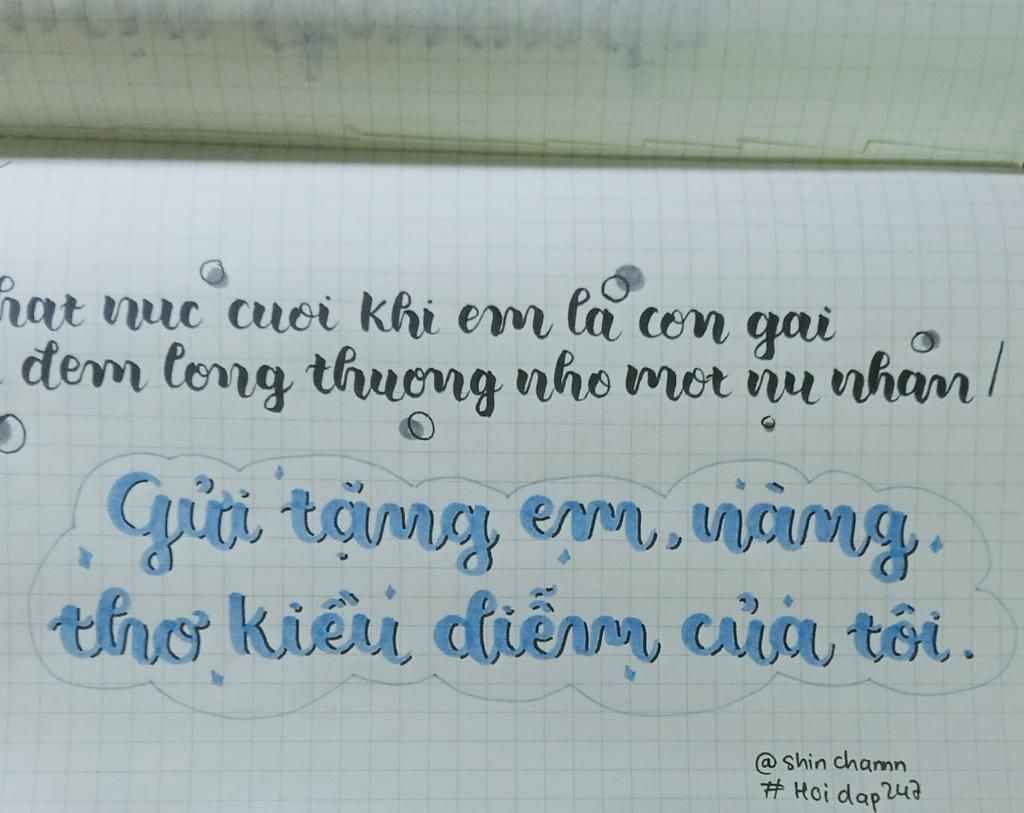 nuc cuoi khi em là con gai
dem long thuong nho mot nụ nhan /
Gửi tặng em, nàng
thơ kiều diễm của tôi.
@shin chamn
# Hoi dap247